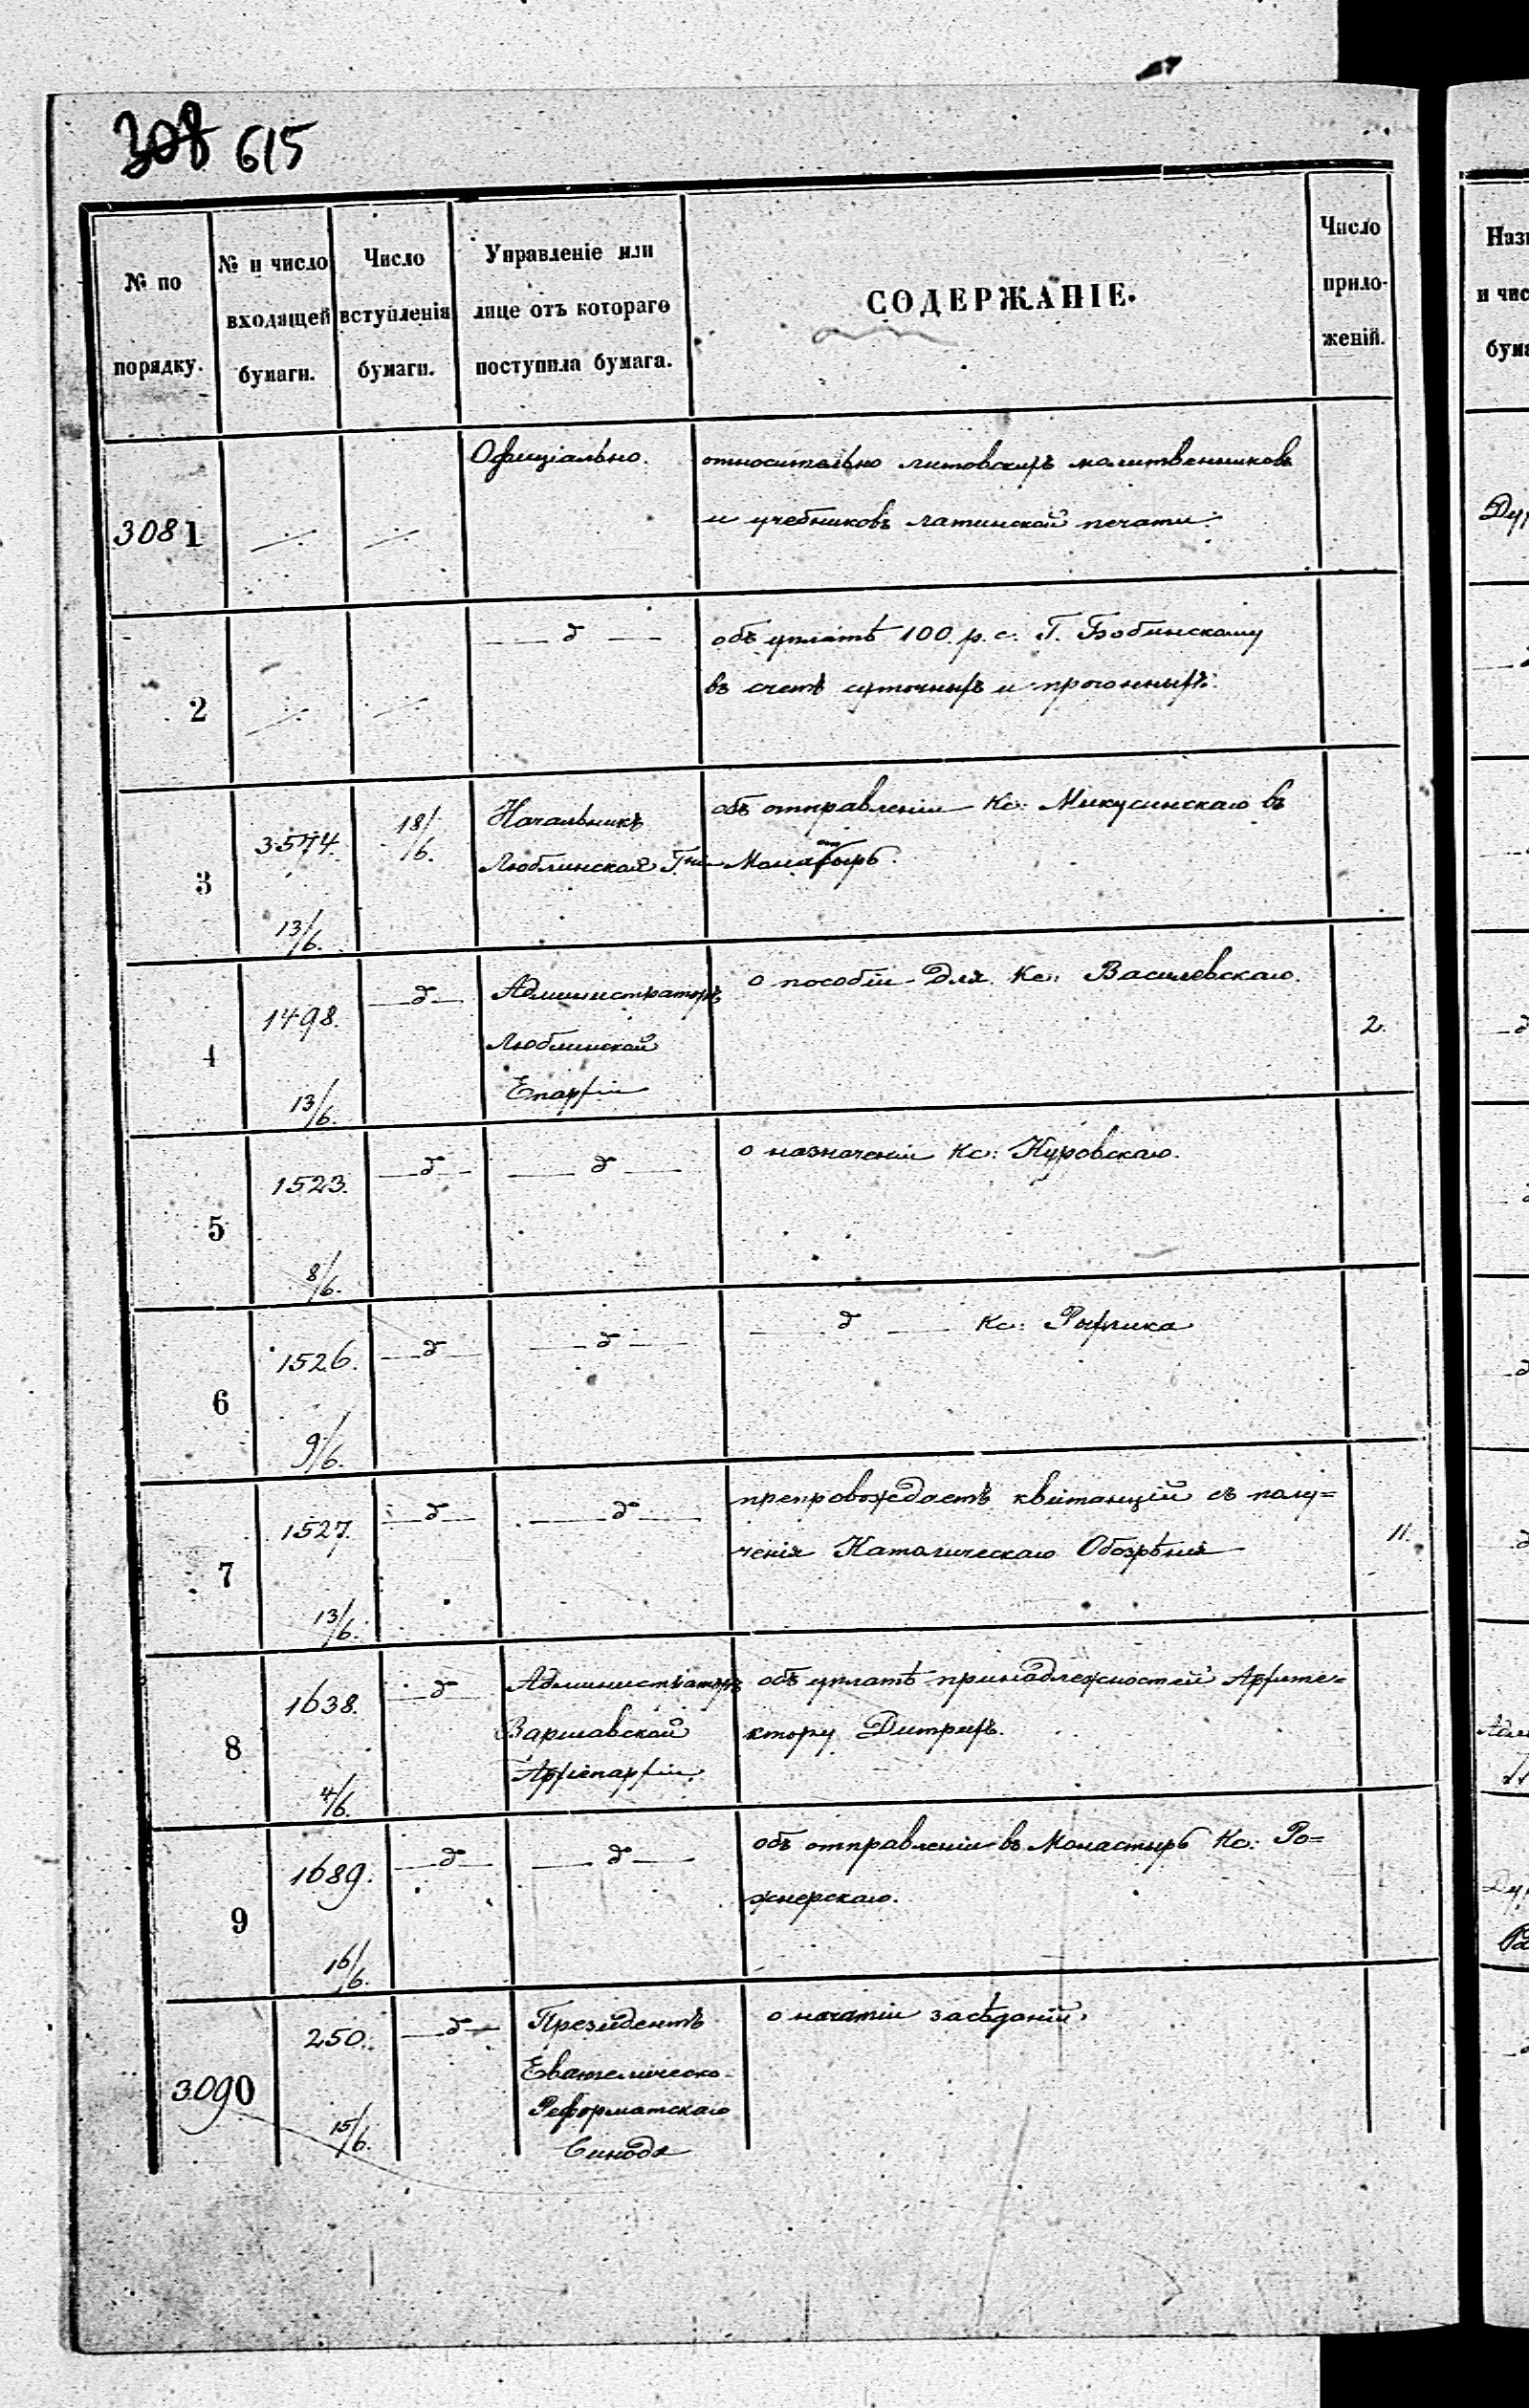 308 615
№ по порядку.
№ и число входящей бумаги.
Число вступленія бумаги.
Управленіе или лице отъ котораго поступила бумага.
СОДЕРЖАНІЕ.
Число приложеній.
3081
Офиціально.
относительно литовскихъ молитвенниковъ
и учебниковъ латинской печати.
2
— д —
объ уплатѣ 100 р. с. Г. Бобинскому
въ счетъ суточныхъ и прогонныхъ.
3
3574.
13/6.
18/6.
Начальникъ
Люблинской Гніи
объ отправленіи Кс: Микусинскаго въ
Монастырь.
4
1498.
13/6.
— д —
Администраторъ
Люблинской
Епархіи
о пособіи для Кс: Василевскаго.
2.
5
1523.
8/6.
— д —
— д —
о назначеніи Кс: Куровскаго.
6
1526.
9/6.
— д —
— д —
— д — Кс: Рыхлика
7
1527.
13/6.
— д —
— д —
препровождаетъ квитанцій съ полу=
ченія Католическаго Обозрѣнія
11.
8
1638.
4/6.
— д —
Администраторъ
Варшавской
Архіепархіи.
объ уплатѣ принадлежностей Архите=
ктору Дитрихъ.
9
1689.
16/6.
— д —
— д —
объ отправленіи въ Монастырь Кс. Ро=
жнерскаго.
3090
250.
15/6.
— д —
Президентъ
Евангелическо-
Реформатскаго
Синода
о начатіи засѣданій.